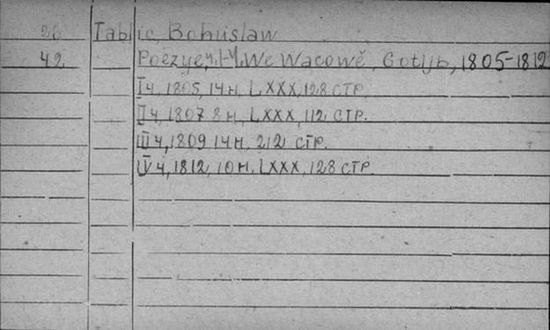 36 Tablic, Bohuslaw
42 Poezye, I-IV. We Wacowě, Gotljb, 1805-1812
I ч, 1805, 14 н, LXXX, 128 стр.
II ч, 1807 8 н, LXXX, 112 стр.
III ч, 1809 14 н. 212 стр.
IV ч, 1812, 10 н. LXXX, 128 стр